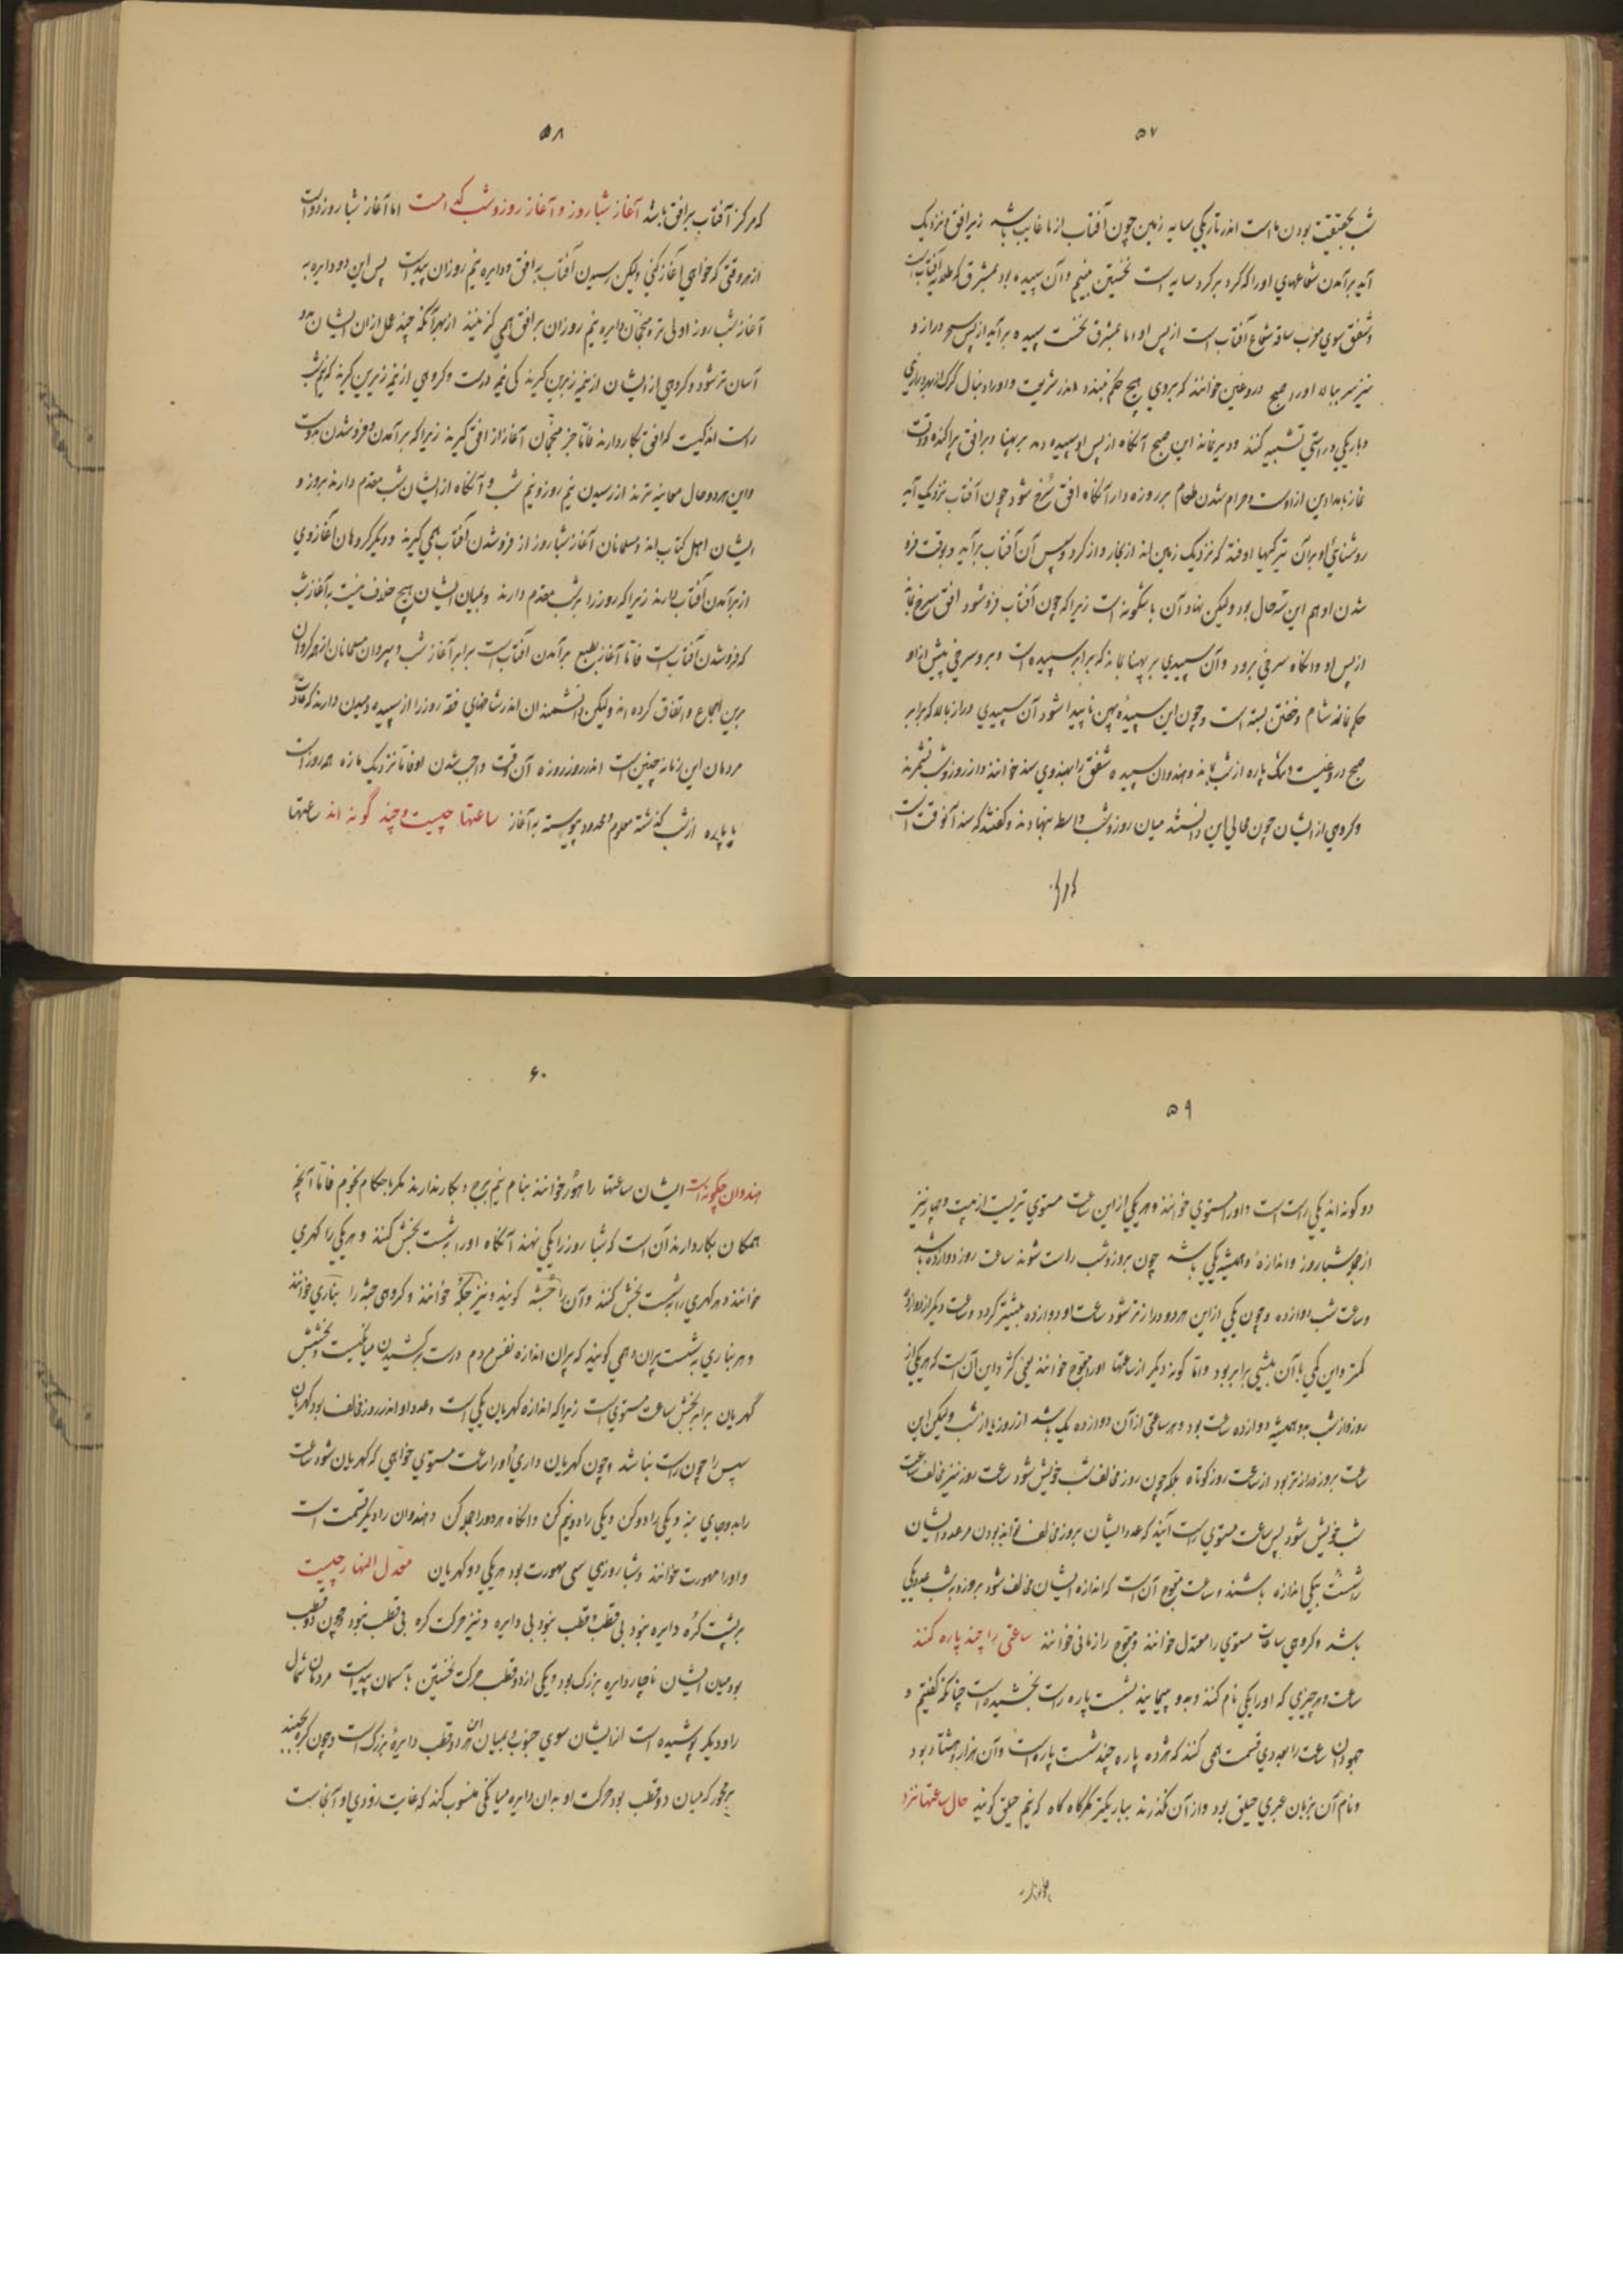 ۵۷
شب بحقیقت بودن ماست اندر تاریکی سایه زمین چون آفتاب از ما غایب باشد زیر افق و نزدیک
آید برآمدن شعاعهای او را که گرد بر گرد سایه است نخستین بینیم و آن سپیده بود بمشرق که طلایه آفتابست
و شفق سوی مغرب ساقه شعاع آفتاب است از پس او اما بمشرق نخست سپیده برآید از پس سحر دراز و
تیز سر ببالا او را صبح دروغین خوانند که بروی هیچ حکم نبندد اندر شریعت و او را دنبال گرگ از بهر درازی
و باریکی و راستی تشبیه کنند و دیر نماند این صبح آنگاه از پس او سپیده دمد بر پهنا و بر افق پراکنده و وقت
نماز بامدادین ازوست و حرام شدن طعام بر روزه دار آنگاه افق سرخ شود چون آفتاب نزدیک آید
روشنائی او بر آن تیرگیها اوفتد که نزدیک زمین اند از بخار و از گرد و سپس آن آفتاب برآید و بوقت فرو
شدن او هم این سه حال بود ولیکن نهاد آن باشگونه است زیرا که چون آفتاب فرو شود افق سرخ بماند
از پس او و آنگاه سرخی برود و آن سپیدی بر پهنا بماند که برابر سپیده است و برو سرخی پیش از او
حکم نماز شام و خفتن بسته است و چون این سپیدهٔ پهن ناپیدا شود آن سپیدی دراز بالا که برابر
صبح دروغینست پاره از شب بماند و هندوان سپیده و شفق را بهندوی سند خوانند و از روز و شب نشمرند
و گروهی از ایشان چون محالی این دانستند میان روز و شب واسطه نهادند و گفتند که سند آنوقت است
که مرکز
۵۸
که مرکز آفتاب بر افق باشد آغاز شباروز و آغاز روز و شب کدام است اما آغاز شباروز رواست
از هر وقتی که خواهی آغاز کنی ولیکن رسیدن آفتاب به افق و دایره نیم روزان پیداست پس این دو دایره به
آغاز شب روز اولی تر و منجمان دایره نیم روزان بر افق همی گزینند از بهر آنکه چند عمل از آن ایشان بدو
آسان تر شود و گروهی از ایشان از نیمه زبرین گیرند که نیم روزست و گروهی از نیمه زیرین گیرند که نیم شب
راست اندکیست که افق بکار دارند فاما جز منجمان آغاز از افق گیرند زیرا که برآمدن و فرو شدن بدوست
و این هر دو حال معاینه ترند از رسیدن نیم روز و نیم شب و آنگاه از ایشان شب مقدم دارند بروز و
ایشان اهل کتاب اند و مسلمانان آغاز شباروز از فرو شدن آفتاب همی گیرند و دیگر گروهان آغاز وی
از برآمدن آفتاب دارند زیرا که روز را بر شب مقدم دارند و بمیان ایشان هیچ خلاف نیست بآغاز شب
که فرو شدن آفتابست فاما آغاز بطبع برآمدن آفتابست برابر آغاز شب و بیرون مسلمانان از همه گروهان
برین اجماع و اتفاق کرده اند ولیکن دانشمندان اندر شاخهای فقه روز را از سپیده دمیدن دارند که عادت
مردمان این زمانه چنین است اندر روز روزه آن وقت واجب شدن او فاما نزدیک ما زه همه روز است
با پاره از شب گذشته معلوم و محدود پیوسته به آغاز ساعتها چیست و چند گونه اند ساعتها
۵۹
دو گونه اند یکی راست است و او را مستوی خوانند و هر یکی از این ساعت مستوی تریست از بیست و چهار تیر
از جمله شباروز و اندازهٔ و همیشه یکی باشد چون بروز و شب راست شوند ساعت روز دوازده باشد
و ساعت شب دوازده و چون یکی از این هر دو درازتر شود ساعت او دوازده بیشتر گردد و ساعت دیگر از دوازده
کمتر و این کمی با آن بیشی برابر بود و اما گونه دیگر از ساعتها او را معوج خوانند یعنی کژ و این آن است که هر یکی از
روز و از شب بدو همیشه دوازده ساعت بود و هر ساعتی از آن دوازده یک باشد از روز یا از شب ولیکن این
ساعت بروز درازتر بود از ساعت روز کوتاه بلکه چون روز مخالف شب خویش شود ساعت روز نیز مخالف ساعت
شب خویش شود پس ساعت مستوی راست آنند که عدد ایشان بروز مخالف تواند بودن مر عدد ایشان
را بشب و یکی اندازه باشند و ساعت معوج آن است که اندازه ایشان مخالف شود بروز و بشب و عدد یکی
باشد و گروهی ساعات مستوی را معتدل خوانند و معوج را زمانی خوانند ساعتی را چند پاره کنند
ساعت و هر چیزی که او را یکی نام کنند و بدو پیمایند بشست پاره راست بخشیده است چنانکه گفتیم و
جهودان ساعت را بجدی قسمت همی کنند که هژده پاره چند شست پاره است و آن هزار و هشتاد بود
و نام آن بزبان عبری حیلق بود و از آن نگذرند بباریکتر مگر گاه گاه که نیم حیلق گویند حال ساعتها نزد
هندوان
۶۰
هندوان چگونه است ایشان ساعتها را هور خوانند بنام نیم برج و بکار ندارند مگر باحکام نجوم فاما آنچه
همگان بکار دارند آن است که شباروز را یکی نهند آنگاه او را به شست بخش کنند و هر یکی را گهری
خوانند و هر گهری را به شست بخش کنند و آن را چشه گویند و نیز جکهٔ خوانند و گروهی چشه را بناری خوانند
و هر بناری به شست پران و همی گویند که پران اندازه نفس مردم درست برکشیدن میانگیست و بخشش
گهریان برابر بخش ساعت مستوی است زیرا که اندازه گهریان یکی است و عدد او اندر روز مخالف بود گهریان
سپس را چون راست نباشد و چون گهریان داری و او را ساعت مستوی خواهی که گهریان شود ساعت
را بدو جای بنه و یکی را دو کن و یکی را دو نیم کن و آنگاه هر دو را جمله کن و هندوان را دیگر قسمت است
و او را مهورت خوانند و شباروزی سی مهورت بود هر یکی دو گهریان معدل النهار چیست
بر پشت کره دایره نبود بی قطب و قطب نبود بی دایره و نیز حرکت کره بی قطب نبود و چون دو قطب
بود میان ایشان ناچار دایره بزرگ بود و یکی از دو قطب حرکت نخستین بآسمان پیداست مردمان شمال
را و دیگر پوشیده است از ایشان سوی جنوب و بمیان این هر دو قطب دایرهٔ بزرگ است و چون کره بجنبد
بر محور که میان دو قطب بود حرکت او بدان دایره میانگی منسوب کنند که غایت زودی او آنجاست